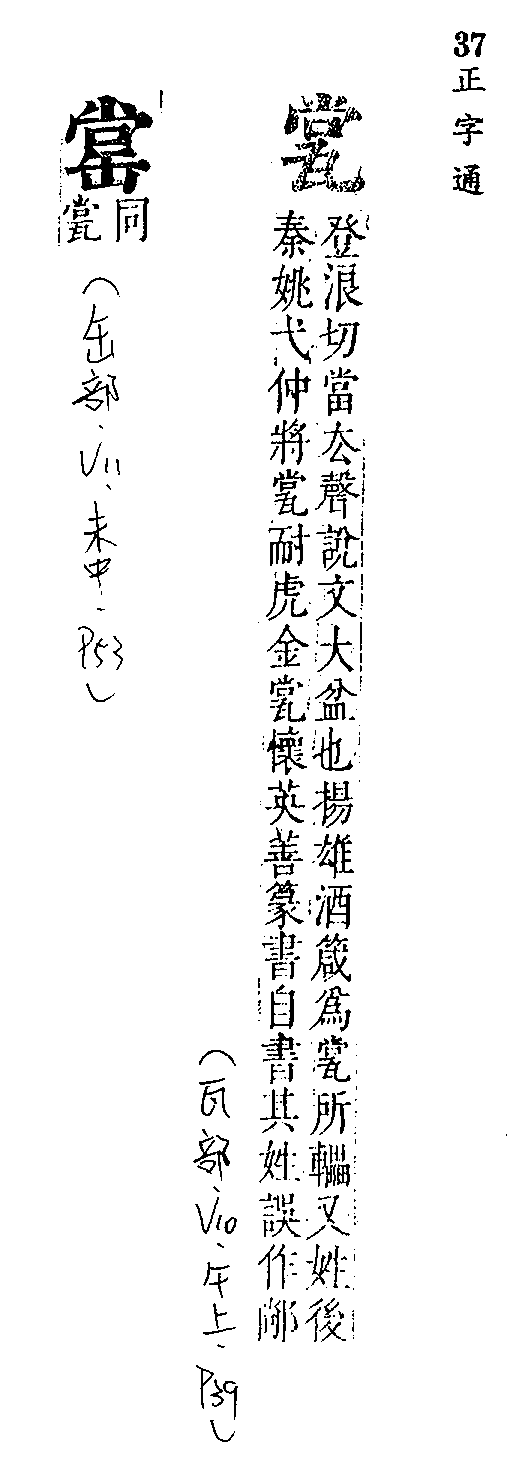 37 正字通
瓽
登浪切當厺聲說文大盆也揚雄酒箴爲瓽所轠又姓後
秦姚弋仲將瓽耐虎金瓽懷英善篆書自書其姓誤作
(瓦部、V10、午上、P39)
同
瓽
(缶部、V11、未中、P53)